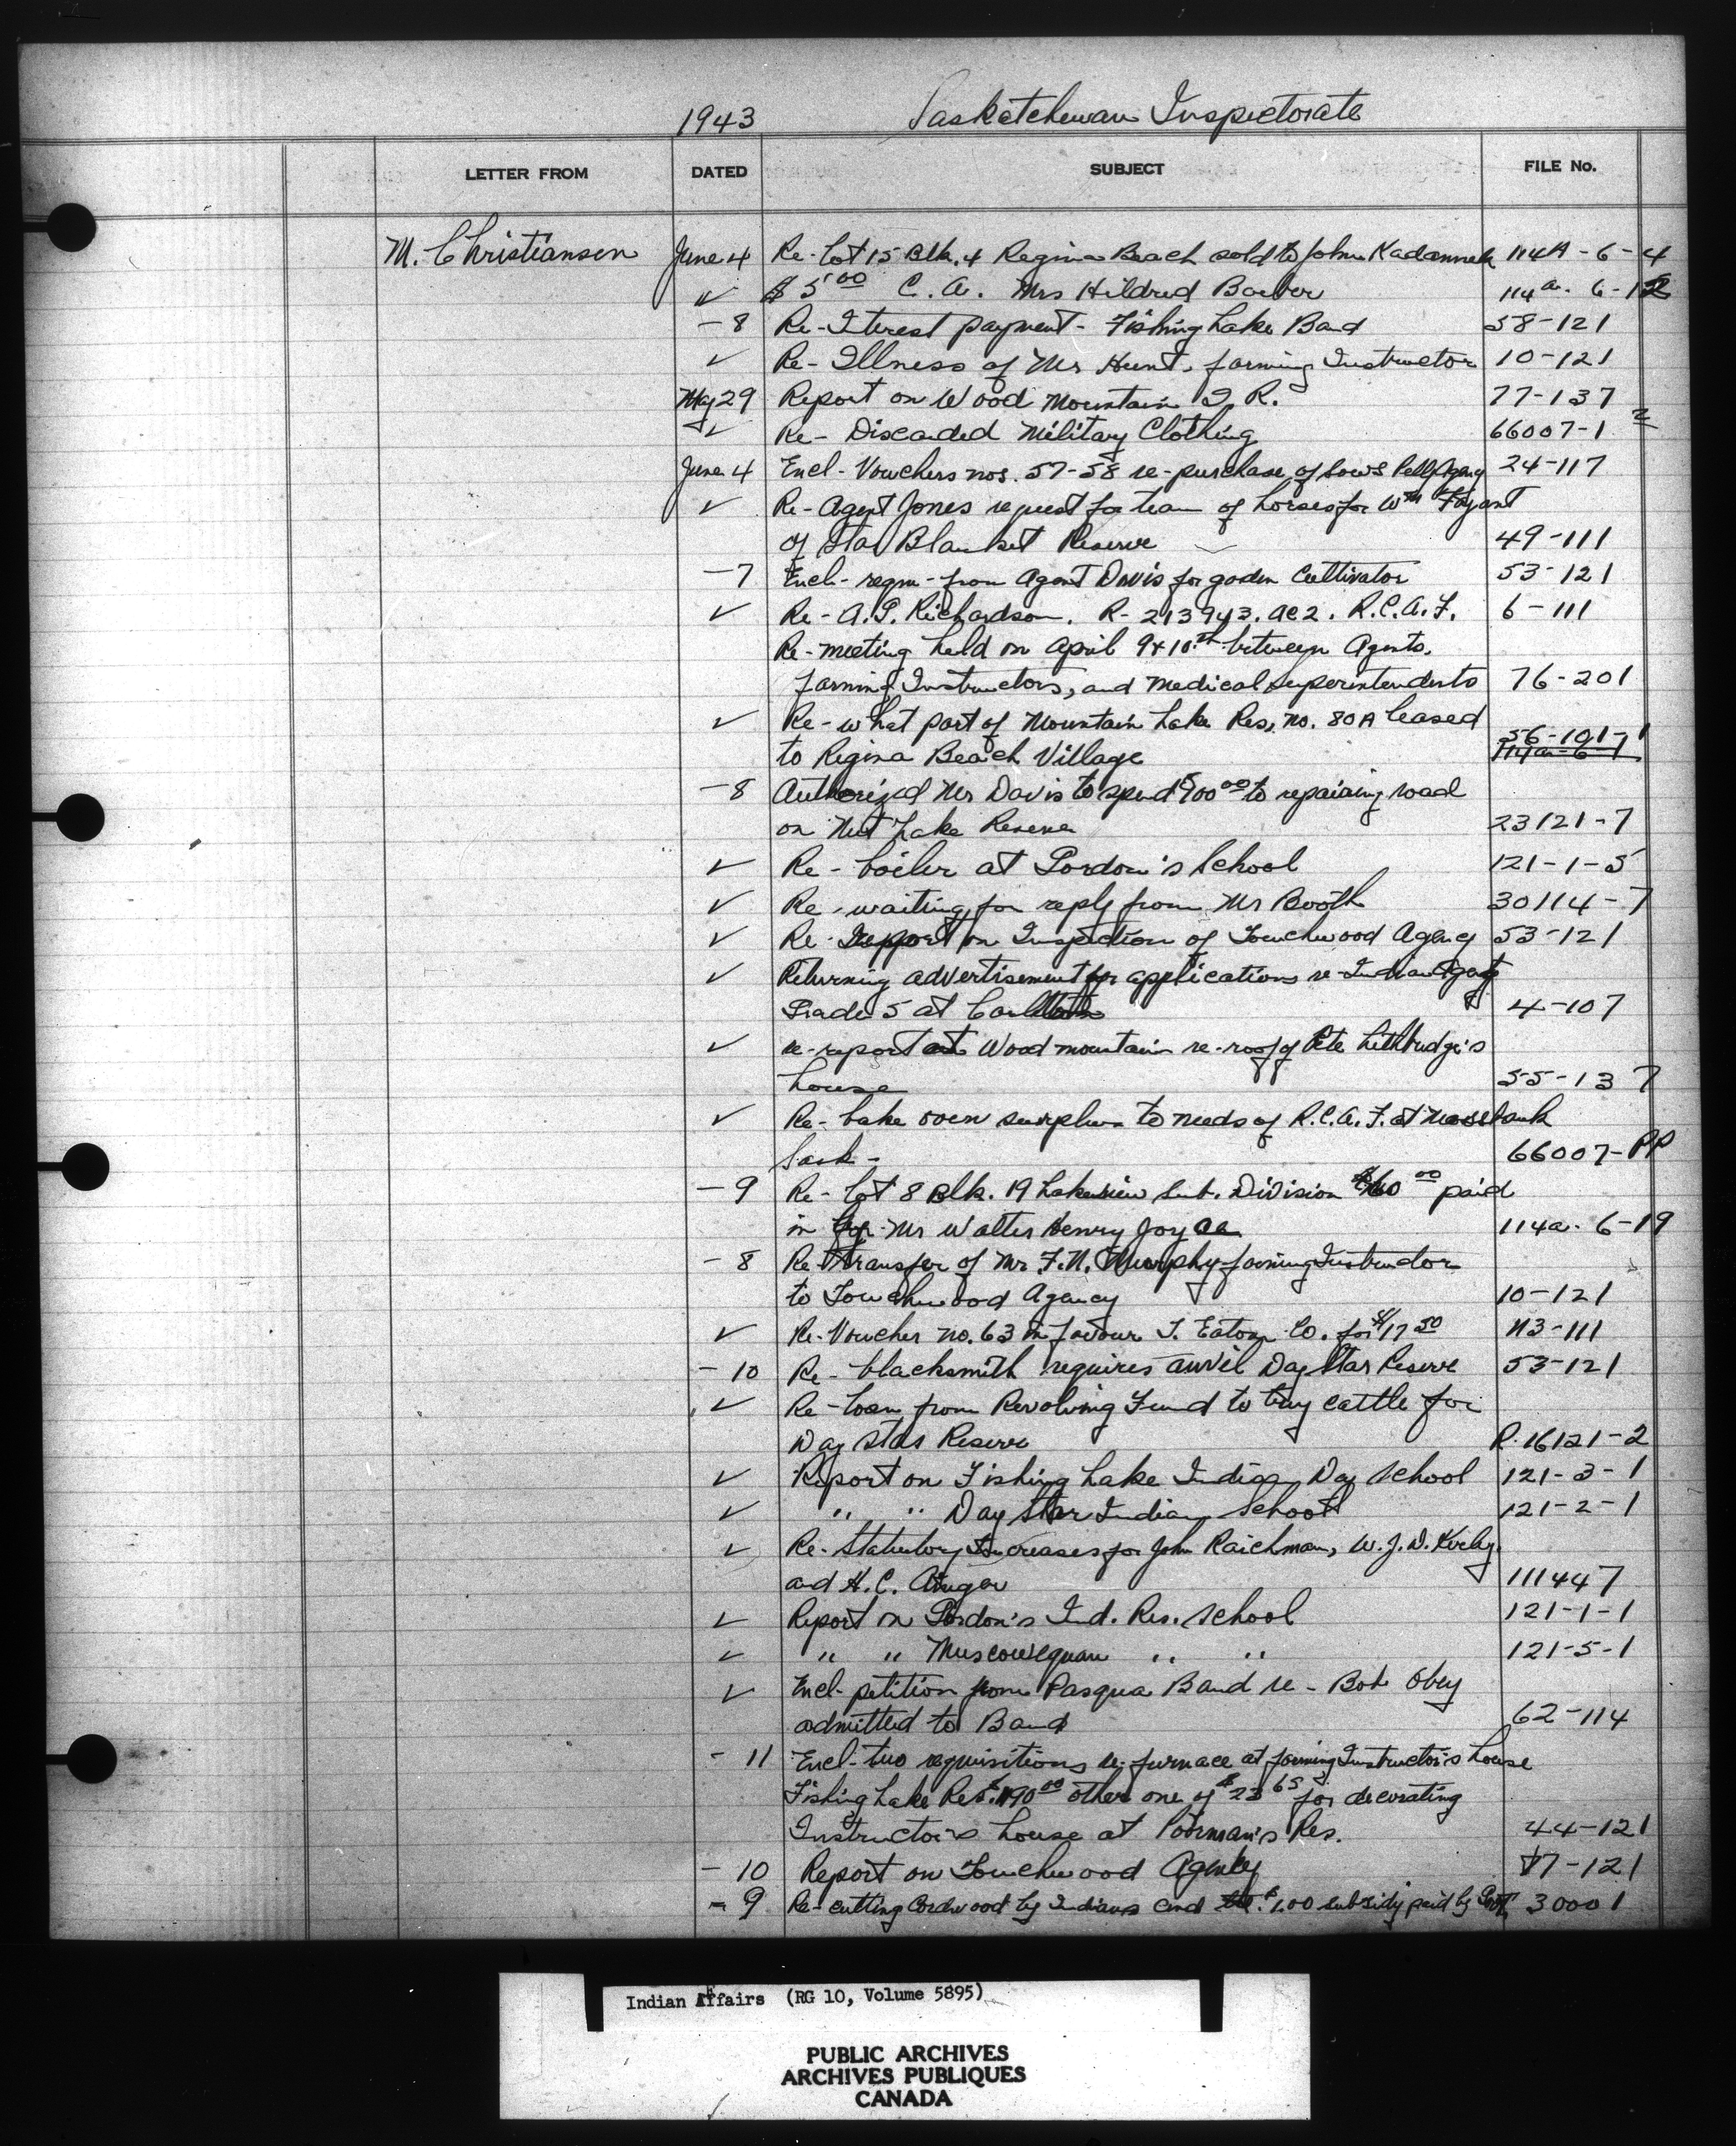 1943 Saskatchewan Inspectorate
LETTER FROM DATED SUBJECT FILE No.
M. Christianson June 4 Re- Lot 15 Blk. 4 Regina Beach sold to John 114A-6-4
✓ $5.00 C.A. Mrs Hildred Barber 114a. 6-12
-8 Re- Iterest payment- Fishing Lake Band 58-121
✓ Re- Illness of Mr Hunt, farming Instructor 10-121
May 29 Report on Wood Mountain I.R. 77-137
✓ Re- Discarded Military Clothing 66007-1 2
June 4 Encl- Vouchers nos. 57-58 re-purchase of Sows Pelly Agency 24-117
✓ Re- Agent Jones request for team of horses for Wm Fayant
of Star Blanket Reserve 49-111
-7 Encl- reqn- from Agent Davis for garden Cultivator 53-121
✓ Re- A.S. Richardson. R-213943. AC2. R.C.A.F. 6-111
Re- meeting held on April 9 & 10th between Agents,
farming Instructors, and Medical Superintendents 76-201
✓ Re- what part of Mountain Lake Res, no. 80A leased
to Regina Beach Village 56-101-1
114a-6-1
-8 Authorized Mr Davis to spend $900.00 to repairing road
on Nut Lake Reserve 23121-7
✓ Re- boiler at Gordon's School 121-1-5
✓ Re- waiting for reply from Mr Booth 30114-7
✓ Re- Report on Inspection of Touchwood Agency 53-121
✓ Returning advertisement for applications re- Indian Agent
Grade 5 at Carlton 4-107
✓ re-report at Wood mountain re-roof of Pete Lethbridge's
house 55-137
✓ Re- bake oven surplus to needs of R.C.A.F. at Mossbank
Sask- 66007-PP
-9 Re- Lot 8 Blk. 19 Lakeview Sub. Division $160.00 paid
in by Mr Walter Henry Joyce 114a. 6-19
-8 Re- Transfer of Mr. F.N. Murphy farming Instructor
to Touchwood Agency 10-121
✓ Re- Voucher no. 63 in favour T. Eaton Co. for $17.50 113-111
-10 Re- blacksmith requires anvil Day Star Reserve 53-121
✓ Re- Loan from Revolving Fund to buy cattle for
Day Star Reserve R. 16121-2
✓ Report on Fishing Lake Indian Day School 121-3-1
✓ " " Day Star Indian School 121-2-1
✓ Re- Statutory Increases for John Raichman, W.J.D. Kerley,
and H.C. 111447
✓ Report on Gordon's Ind. Res. School 121-1-1
✓ " " Muscowequan " " 121-5-1
✓ Encl- petition from Pasqua Band re- Bob Obey
admitted to Band 62-114
-11 Encl- two requisitions re- furnace at farming Instructor's house
Fishing Lake Res. $190.00 other one of $23.65 for decorating
Instructor's house at Poorman's Res. 44-121
-10 Report on Touchwood Agency 17-121
-9 Re- cutting Cordwood by Indians and $1.00 subsidy paid by Govt. 30001
Indian Affairs (RG 10, Volume 5895)
PUBLIC ARCHIVES
ARCHIVES PUBLIQUES
CANADA